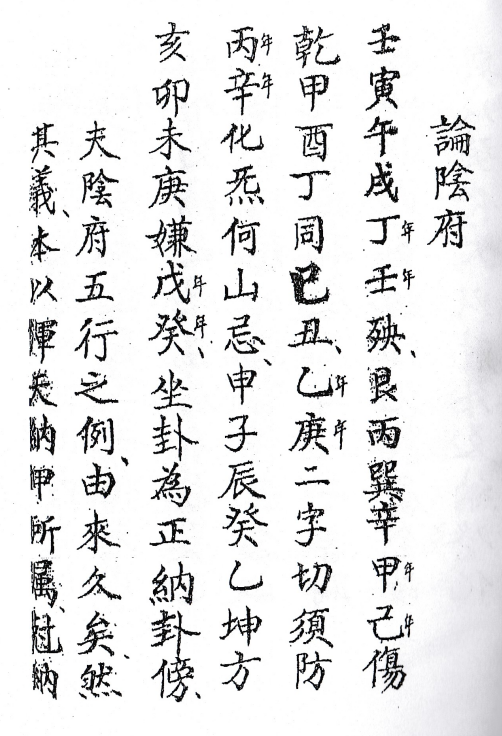 論陰府
壬寅午戌丁年壬年殃、艮丙巽辛甲年己年傷
乾甲酉丁同巳丑、乙年庚年二字切須防
丙年辛年化炁何山忌、申子辰癸乙坤方
亥卯未庚嫌戊年癸年、坐卦為正納卦傍、
夫陰府五行之例、由來久矣、然
其義、本以渾天納甲所屬、納